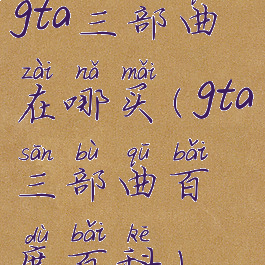 gta三部曲
zài nǎ mǎi
在哪买（gta
sān bù qū bǎi
三部曲百
dù bǎi kē
度百科）